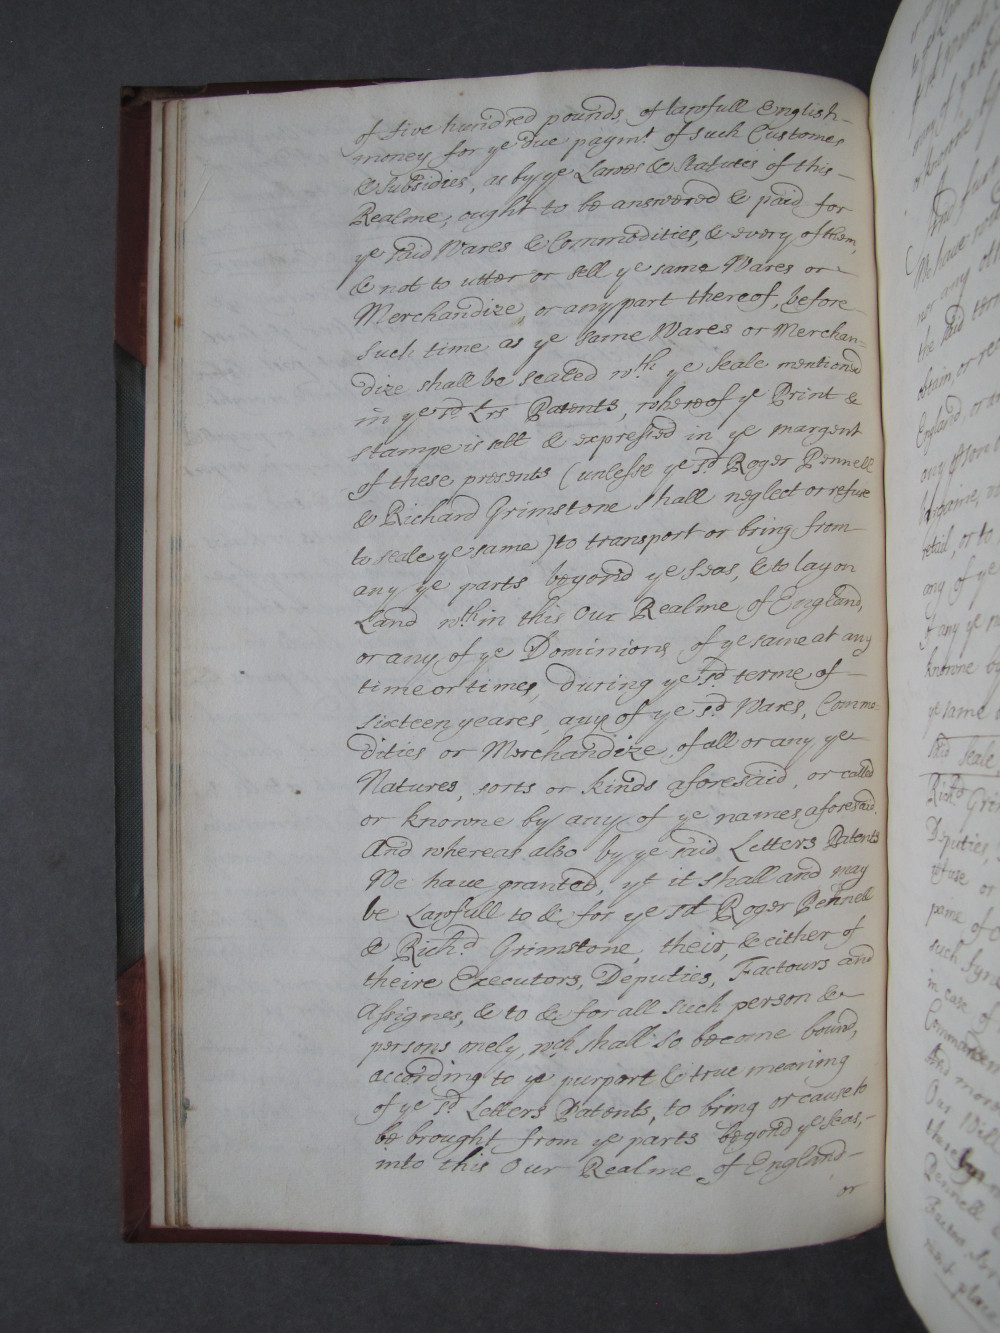 of five hundred pounds, of lawfull English-
money for ye due paymt. of such Customes
& Subsidies, as by ye Lawes & Statutes of this-
Realme, ought to be answered & paid for
ye said Wares & Commodities, & every of them,
& not to utter or sell ye same Wares or-
Merchandize, or any part thereof, before-
such time as ye same Wares or Merchan=
dize shall be sealed wth. ye Seale mentioned
in ye sd. Lrs Patents, whereof ye Print &
stampe is sett & expressed in ye margent
of these presents (unlesse ye sd Roger Pennell
& Richard Grimstone shall neglect or refuse
to seale ye same) to transport or bring from-
any ye parts beyond ye Seas, & to lay on
Land wthin this Our Realme of England,
or any of ye Dominions of ye same at any
time or times, during ye sd terme of-
sixteen yeares, any of ye sd Wares, Commo=
dities or Merchandize, of all or any ye-
Natures, sorts or kinds aforesaid, or called
or knowne by any of ye names aforesaid.
And whereas also by ye said Letters Patents
We have granted, yt it shall and may
be Lawfull to & for ye sd Roger Pennell
& Richd. Grimstone, their, & either of
theire Executors, Deputies, Factours and
Assignes, & to & for all such person &-
persons onely, wch shall so become bound,
according to ye purport & true meaning
of ye sd Letters Patents, to bring or cause to
be brought from ye parts beyond ye Seas,-
into this Our Realme of England-
or
the said ter
England, or
any of ye
knowne by
ye same
said Seale
Richd Gri
Deputies,
refuse or
such
in case of
and
Our
Pennell